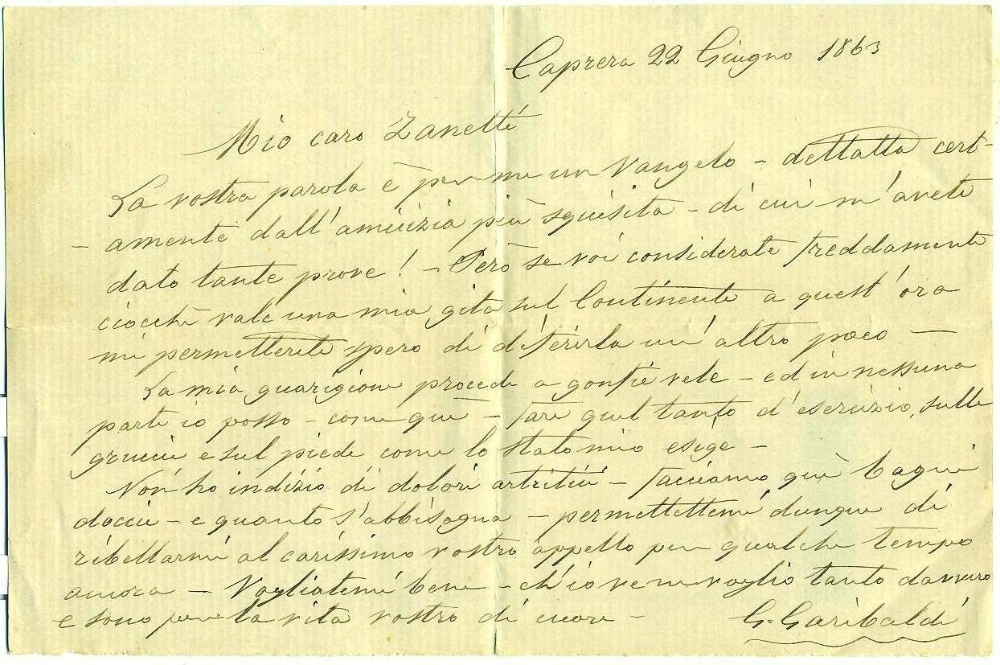 Caprera 22 Giugno 1863
Mio caro Zanetti
La vostra parola è per me un Vangelo - dettatta cert-
- amente dall'amicizia più squisita - di cui m'avete
dato tante prove! - Però se voi considerate freddamente
ciocchè vale una mia gita sul Continente a quest'ora
mi permetterete spero di differirla un'altro poco -
La mia guarigione procede a gonfie vele - ed in nessuna
parte io posso - come quì - fare quel tanto d'esercizio sulle
gruccie e sul piede come lo stato mio esige -
Non ho indizio di dolori artritici - facciamo quì bagni
doccie - e quanto s'abbisogna - permettetemi dunque di
ribellarmi al carissimo vostro appello per qualche tempo
ancora - Vogliatemi bene - ch'io ve ne voglio tanto davvero
e sono per la vita vostro di cuore -
G. Garibaldi